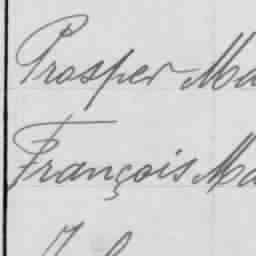 Prosper Ma
François Ma